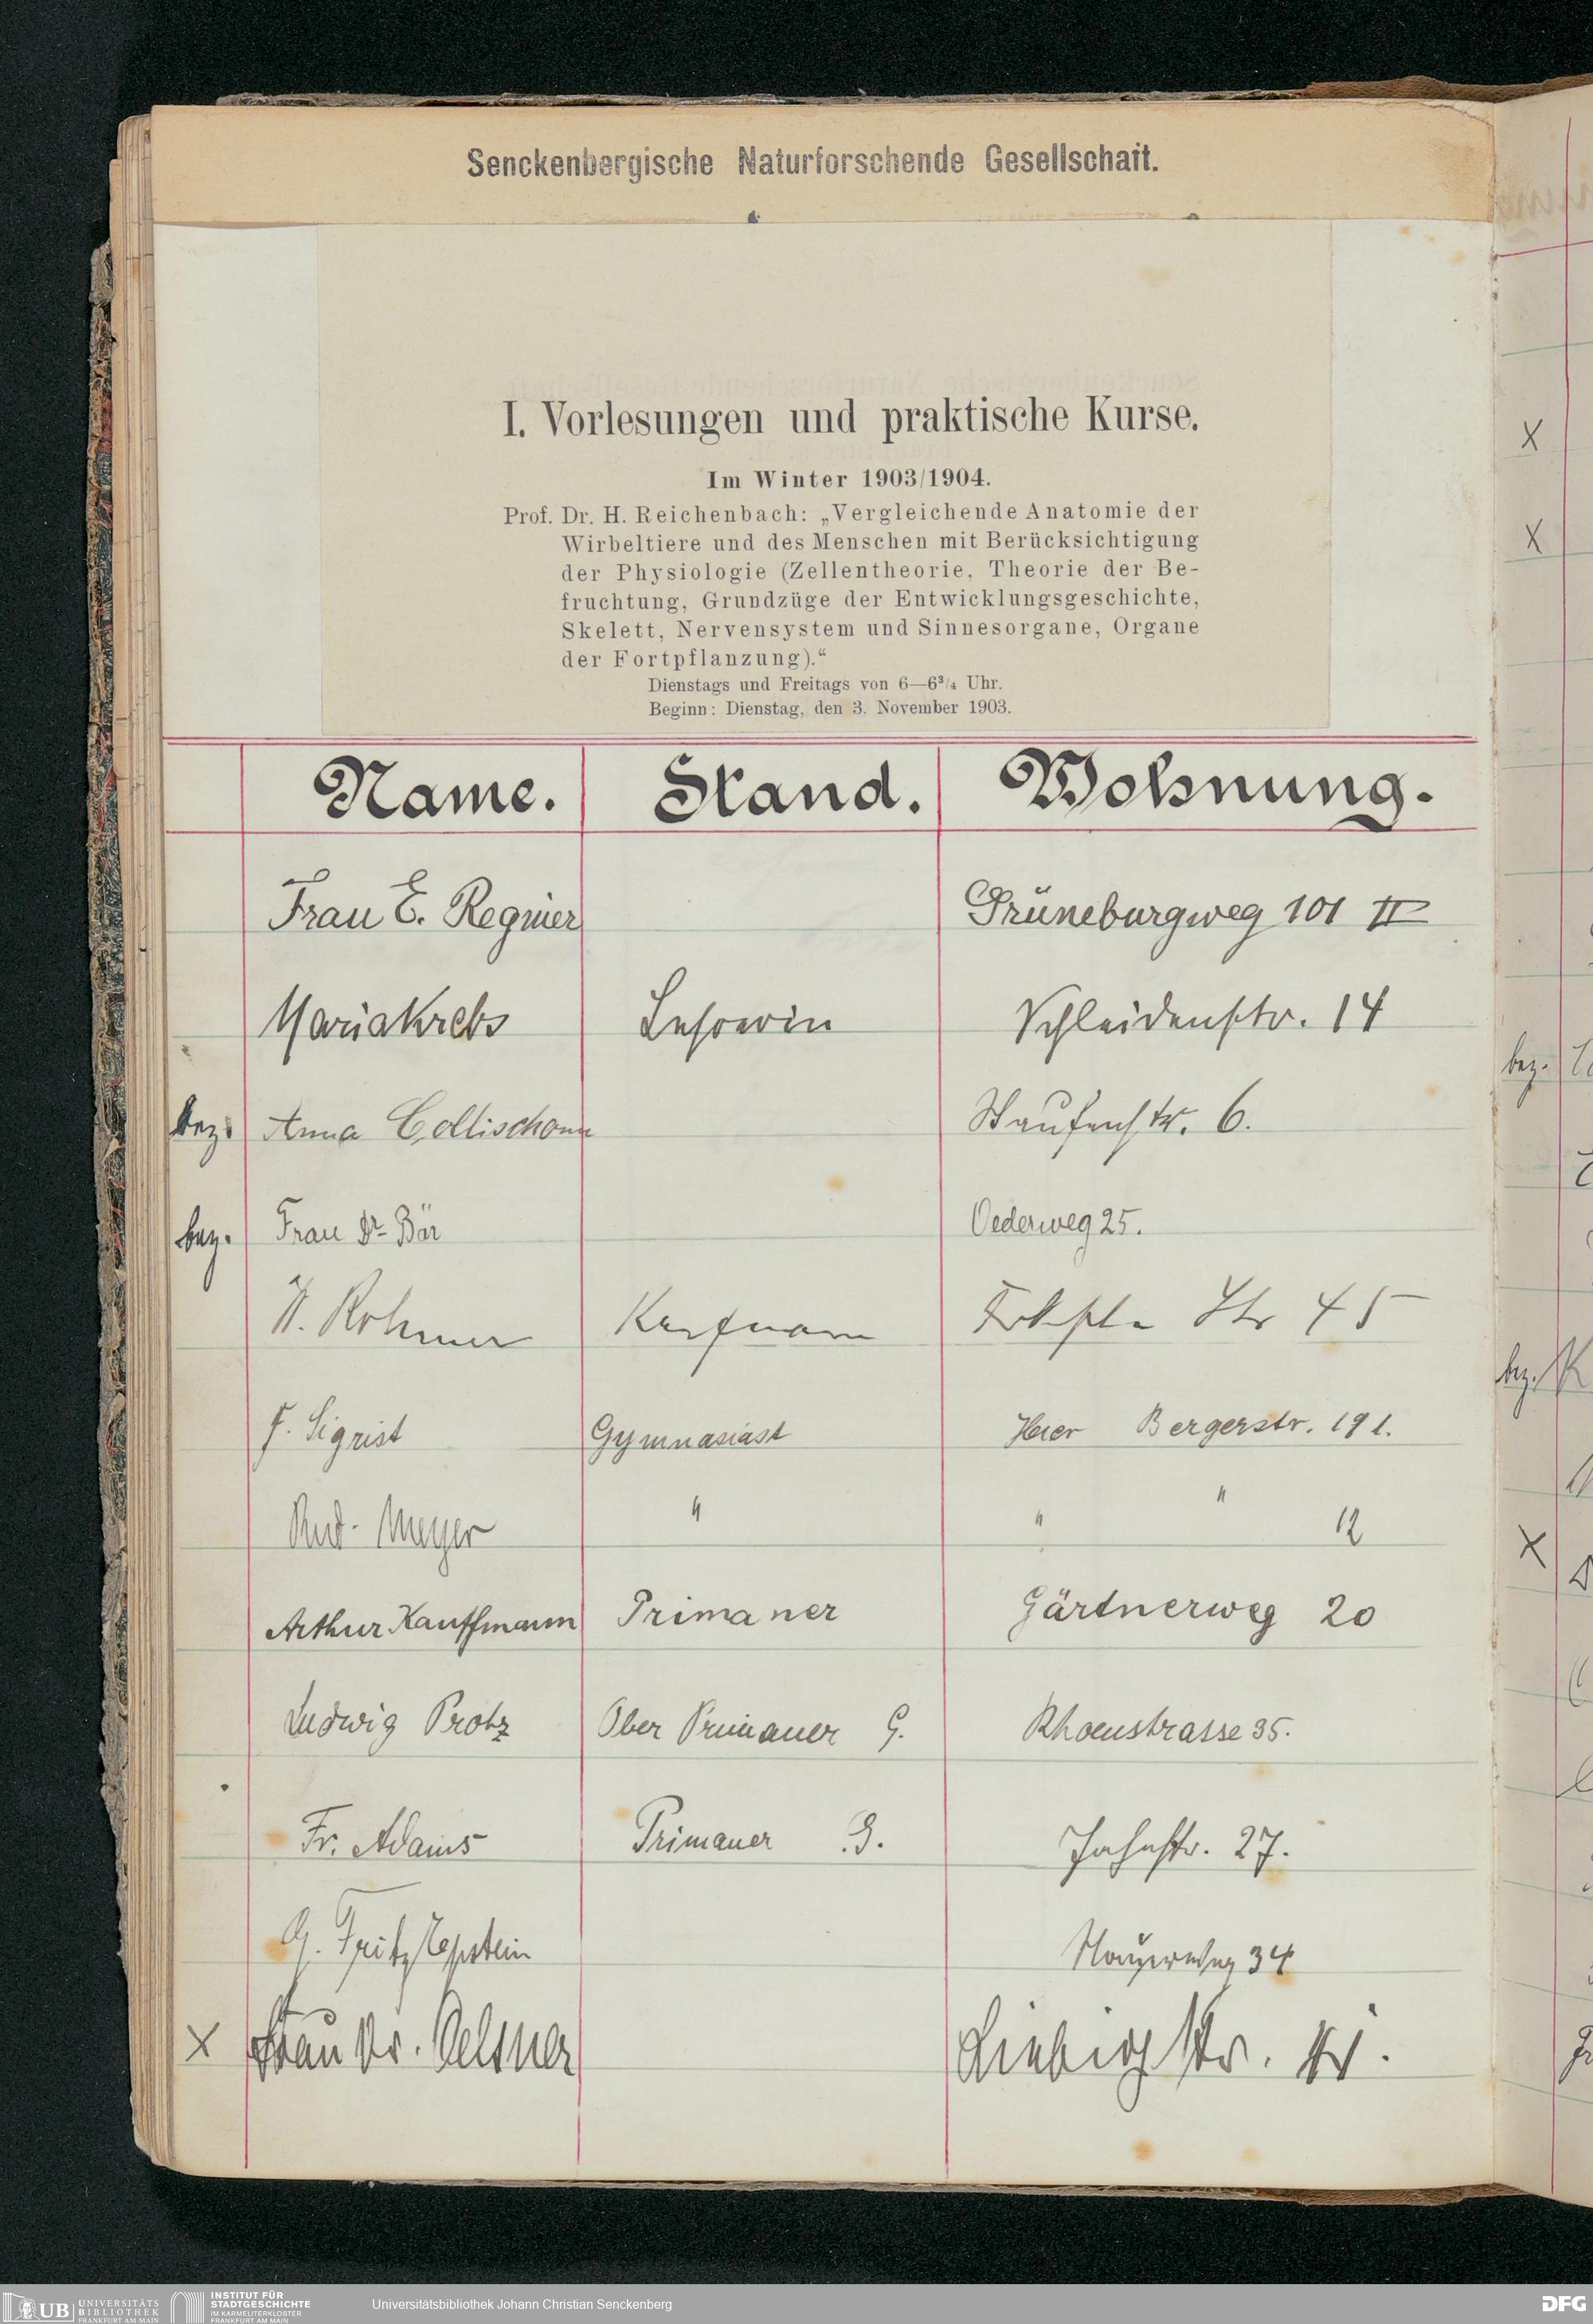 Senckenbergische Naturforschende Gesellschaft.
I. Vorlesungen und praktische Kurse.
Im Winter 1903/1904.
Prof. Dr. H. Reichenbach: „Vergleichende Anatomie der
Wirbeltiere und des Menschen mit Berücksichtigung
der Physiologie (Zellentheorie, Theorie der Be-
fruchtung, Grundzüge der Entwicklungsgeschichte,
Skelett, Nervensystem und Sinnesorgane, Organe
der Fortpflanzung).“
Dienstags und Freitags von 6—6³/₄ Uhr.
Beginn: Dienstag, den 3. November 1903.
Name. Stand. Wohnung.
Frau E. Regnier Grüneburgweg 101 II
Maria Krebs Lehrerin Schleidenstr. 14
bez. Anna Collischonn Staufenstr. 6.
bez. Frau Dr Bär Oederweg 25.
Rohmer Kaufmann Str 45
F. Sigrist Gymnasiast Hier Bergerstr. 191.
Rud. Meyer " " " 12
Arthur Kauffmann Primaner Gärtnerweg 20
Ludwig Protz Ober Primaner G. Rhoenstrasse 35.
Fr. Adams Primaner G. Jahnstr. 27.
Fritz Epstein 34
X Frau Dr. Oelsner Liebigstr.
X
X
bez.
bez.
X
UB UNIVERSITÄTS
BIBLIOTHEK
FRANKFURT AM MAIN
INSTITUT FÜR
STADTGESCHICHTE
IM KARMELITERKLOSTER
FRANKFURT AM MAIN
Universitätsbibliothek Johann Christian Senckenberg
DFG